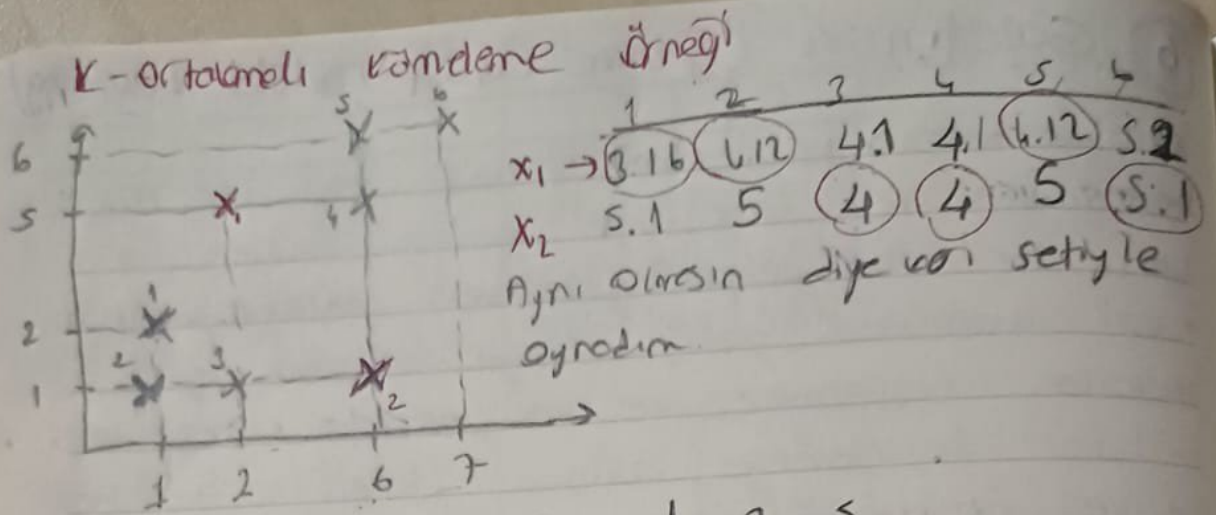 K-ortalamalı kümeleme Örneği
6
5
2
1
1 2 6 7
5 6
4
1
2 3
2
1 2 3 4 5
x₁ → 3.16 4.12 4.1 4.1 4.12 5.
x₂ 5.1 5 4 4 5 5.1
Aynı olmasın diye veri setiyle
oynadım